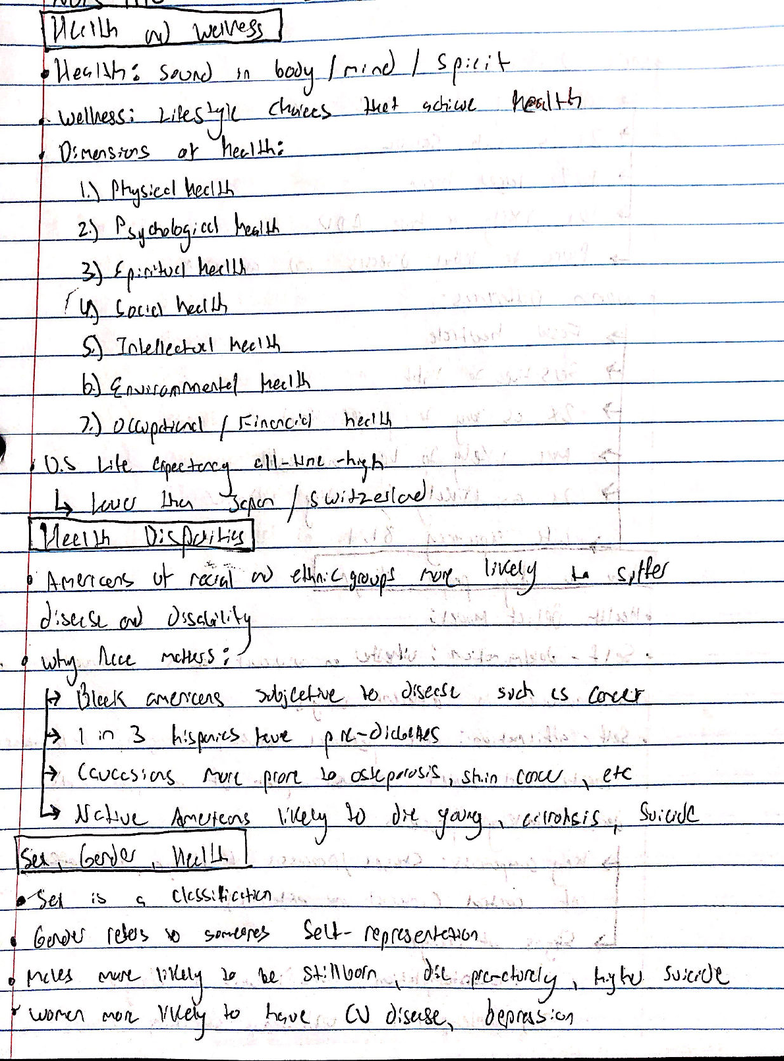 Health and Wellness
• Health: Sound in body / mind / spirit
• Wellness: Lifestyle choices that achieve health
• Dimensions of health:
1.) Physical health
2.) Psychological health
3) Spiritual health
4) Social health
5.) Intellectual health
6) Environmental health
7.) Occupational / Financial health
• U.S Life expectancy all-time-high
↳ lower than Japan / Switzerland
Health Disparities
• Americans of racial and ethnic groups more likely to suffer
disease and disability
• Why Race matters:
→ Black americans subjective to disease such as cancer
→ 1 in 3 hispanics have pre-diabetes
→ Caucasians more prone to osteporosis, skin cancer, etc
↳ Native Americans likely to die young, cirrohsis, suicide
Sex, Gender, Health
• Sex is a classification
• Gender refers to someones Self-representation
• Males more likely to be stillborn, die prematurely, higher suicide
• Women more likely to have CV disease, Depression